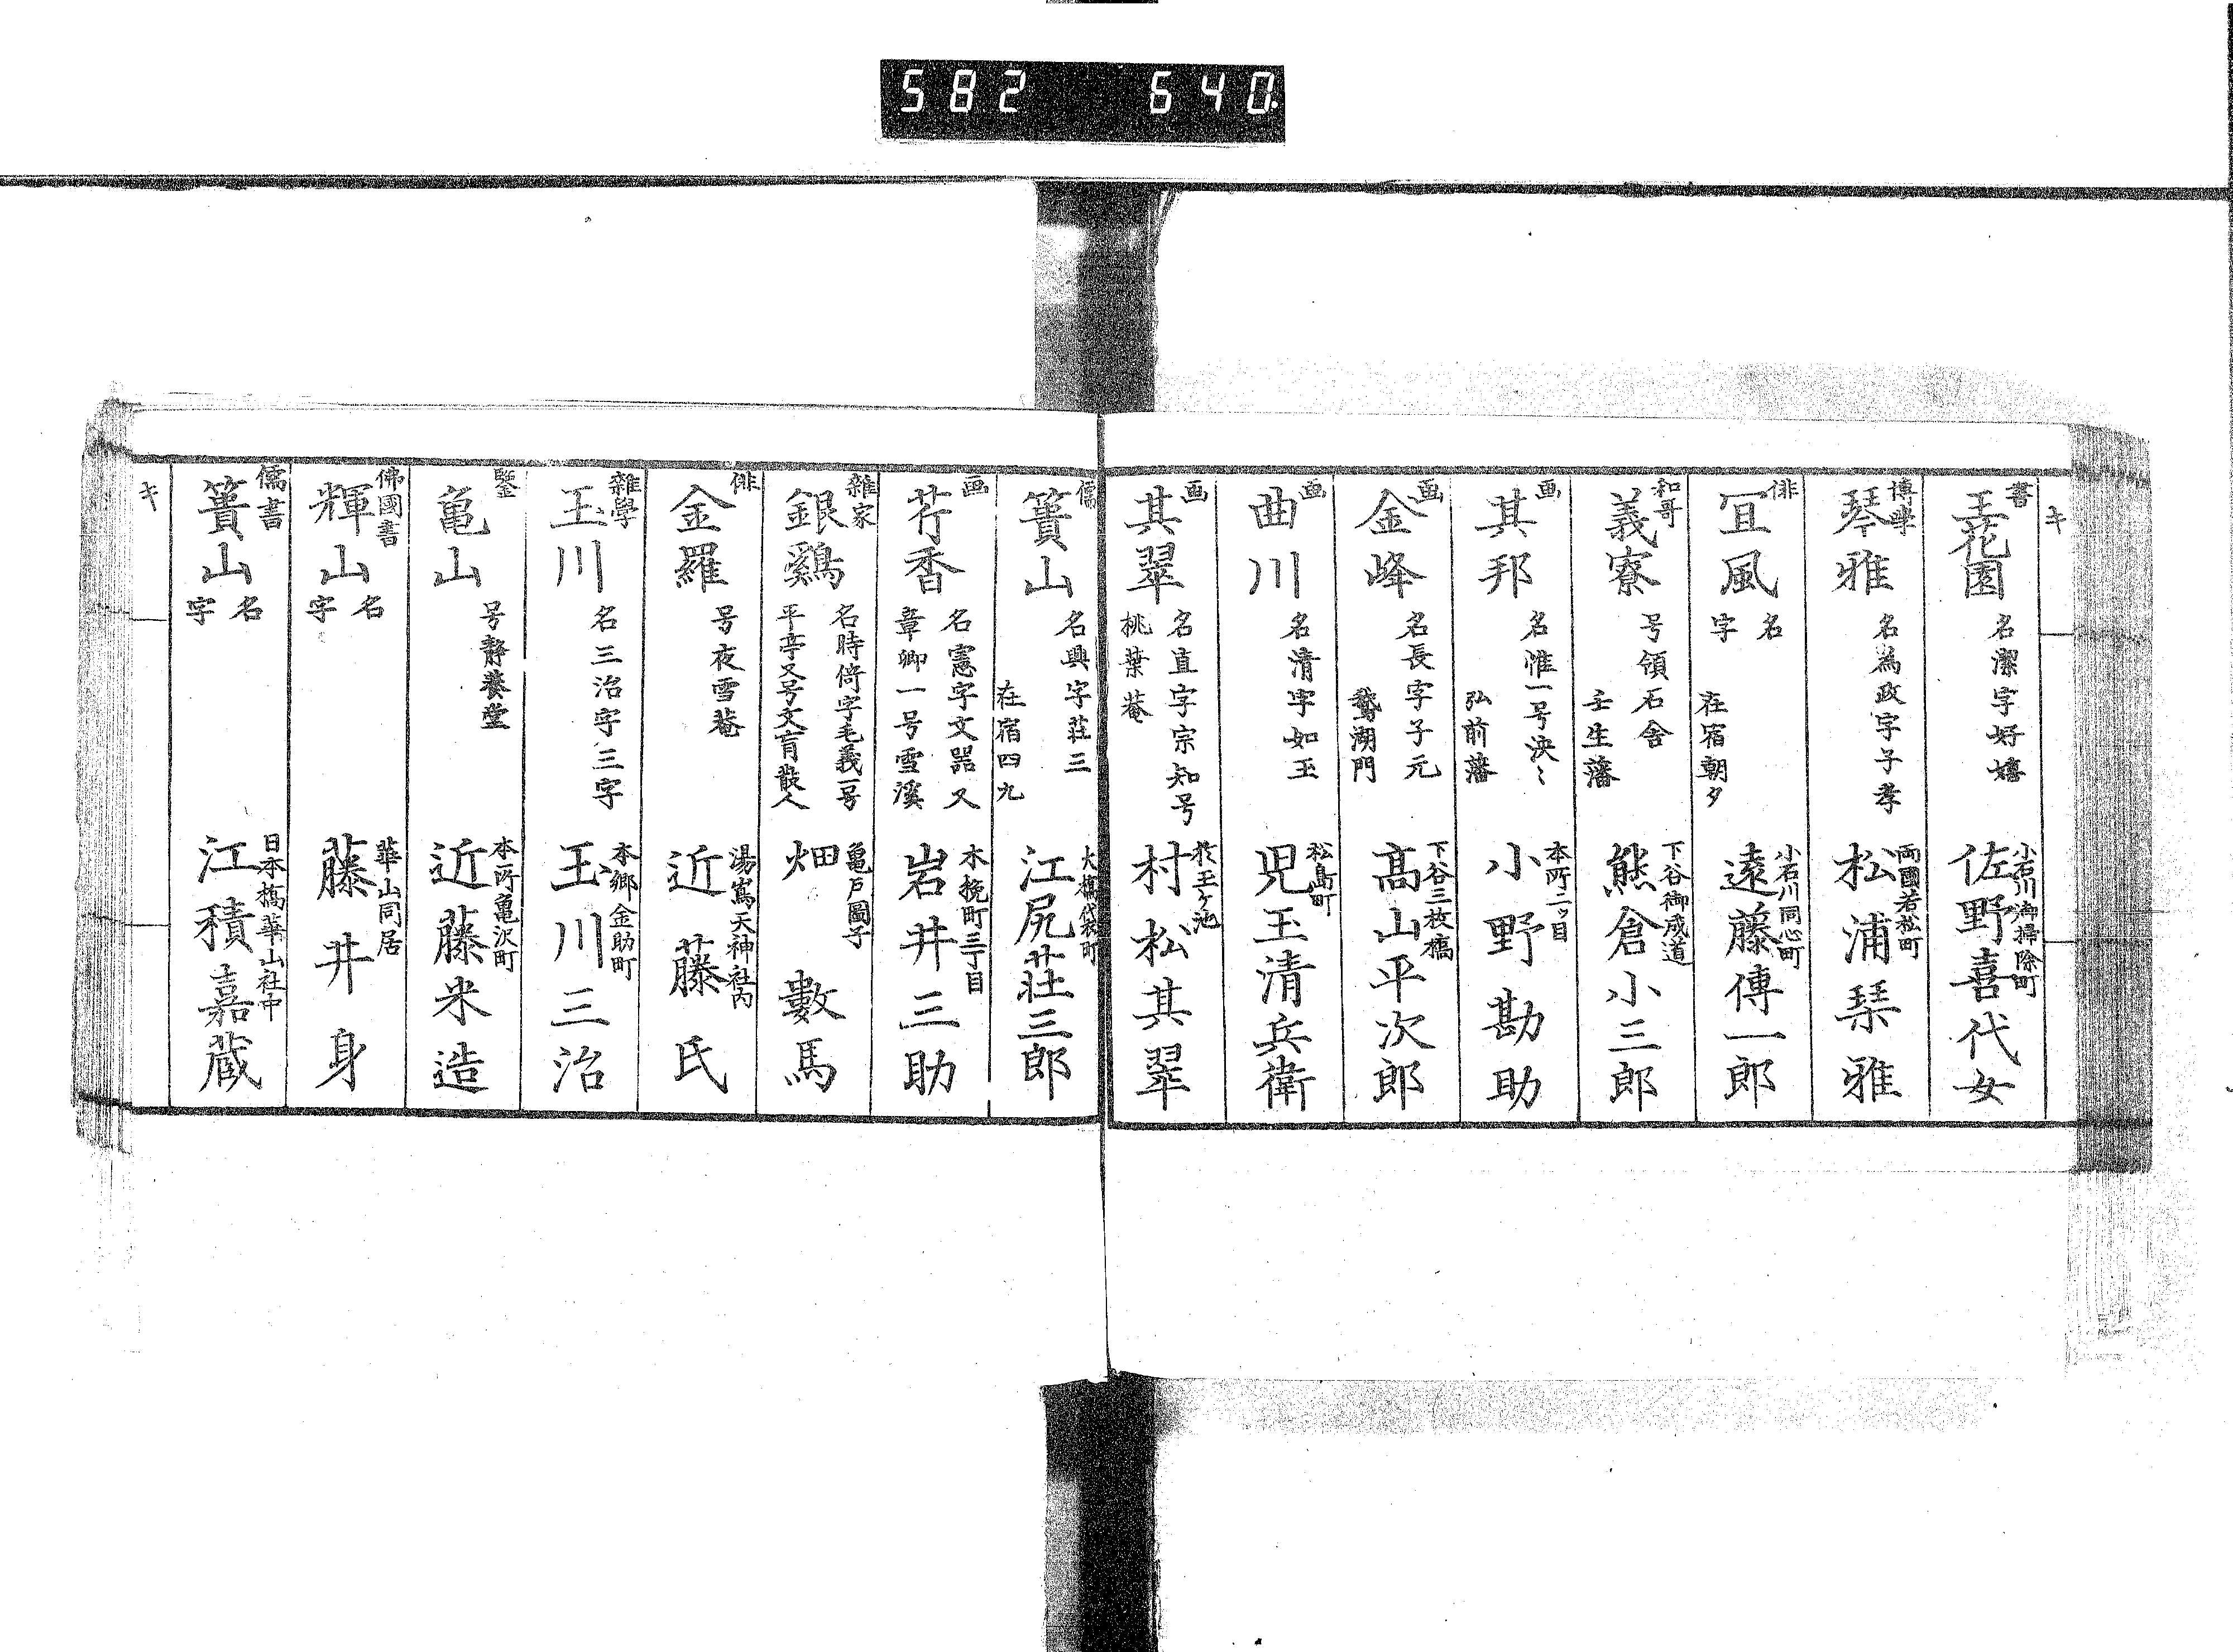 582 640
キ
書 玉花園 名潔字好嬉 小石川御掃除町 佐野喜代女
博学 琴雅 名為政字子孝 両國若松町 松浦琹雅
俳 宜風 名 字 在宿朝夕 小石川同心町 遠藤傳一郎
和哥 義寮 号領石舎 壬生藩 下谷御成道 熊倉小三郎
画 其邦 名惟一号决〻 弘前藩 本所二ツ目 小野勘助
画 金峰 名長字子元 鵞湖門 下谷三枚橋 髙山平次郎
画 曲川 名清字如玉 松島町 児玉清兵衛
画 其翠 名直字宗知号桃葉菴 於玉ケ池 村松其翠
儒 簣山 名興字荘三 在宿四九 大橋代衣町 江尻荘三郎
画 芹香 名憲字文噐又章卿一号雪溪 木挽町三丁目 岩井三助
雜家 銀鷄 名時倚字毛義一号平亭又号文盲散人 亀戸圖子 畑數馬
俳 金羅 号夜雪菴 湯嶌天神社内 近藤氏
雜學 玉川 名三治字三字 本郷金助町 玉川三治
鑒 亀山 号静養堂 本所亀沢町 近藤米造
佛國書 輝山 名 字 華山同居 藤井身
儒書 簣山 名 字 日本橋華山社中 江積嘉蔵
キ